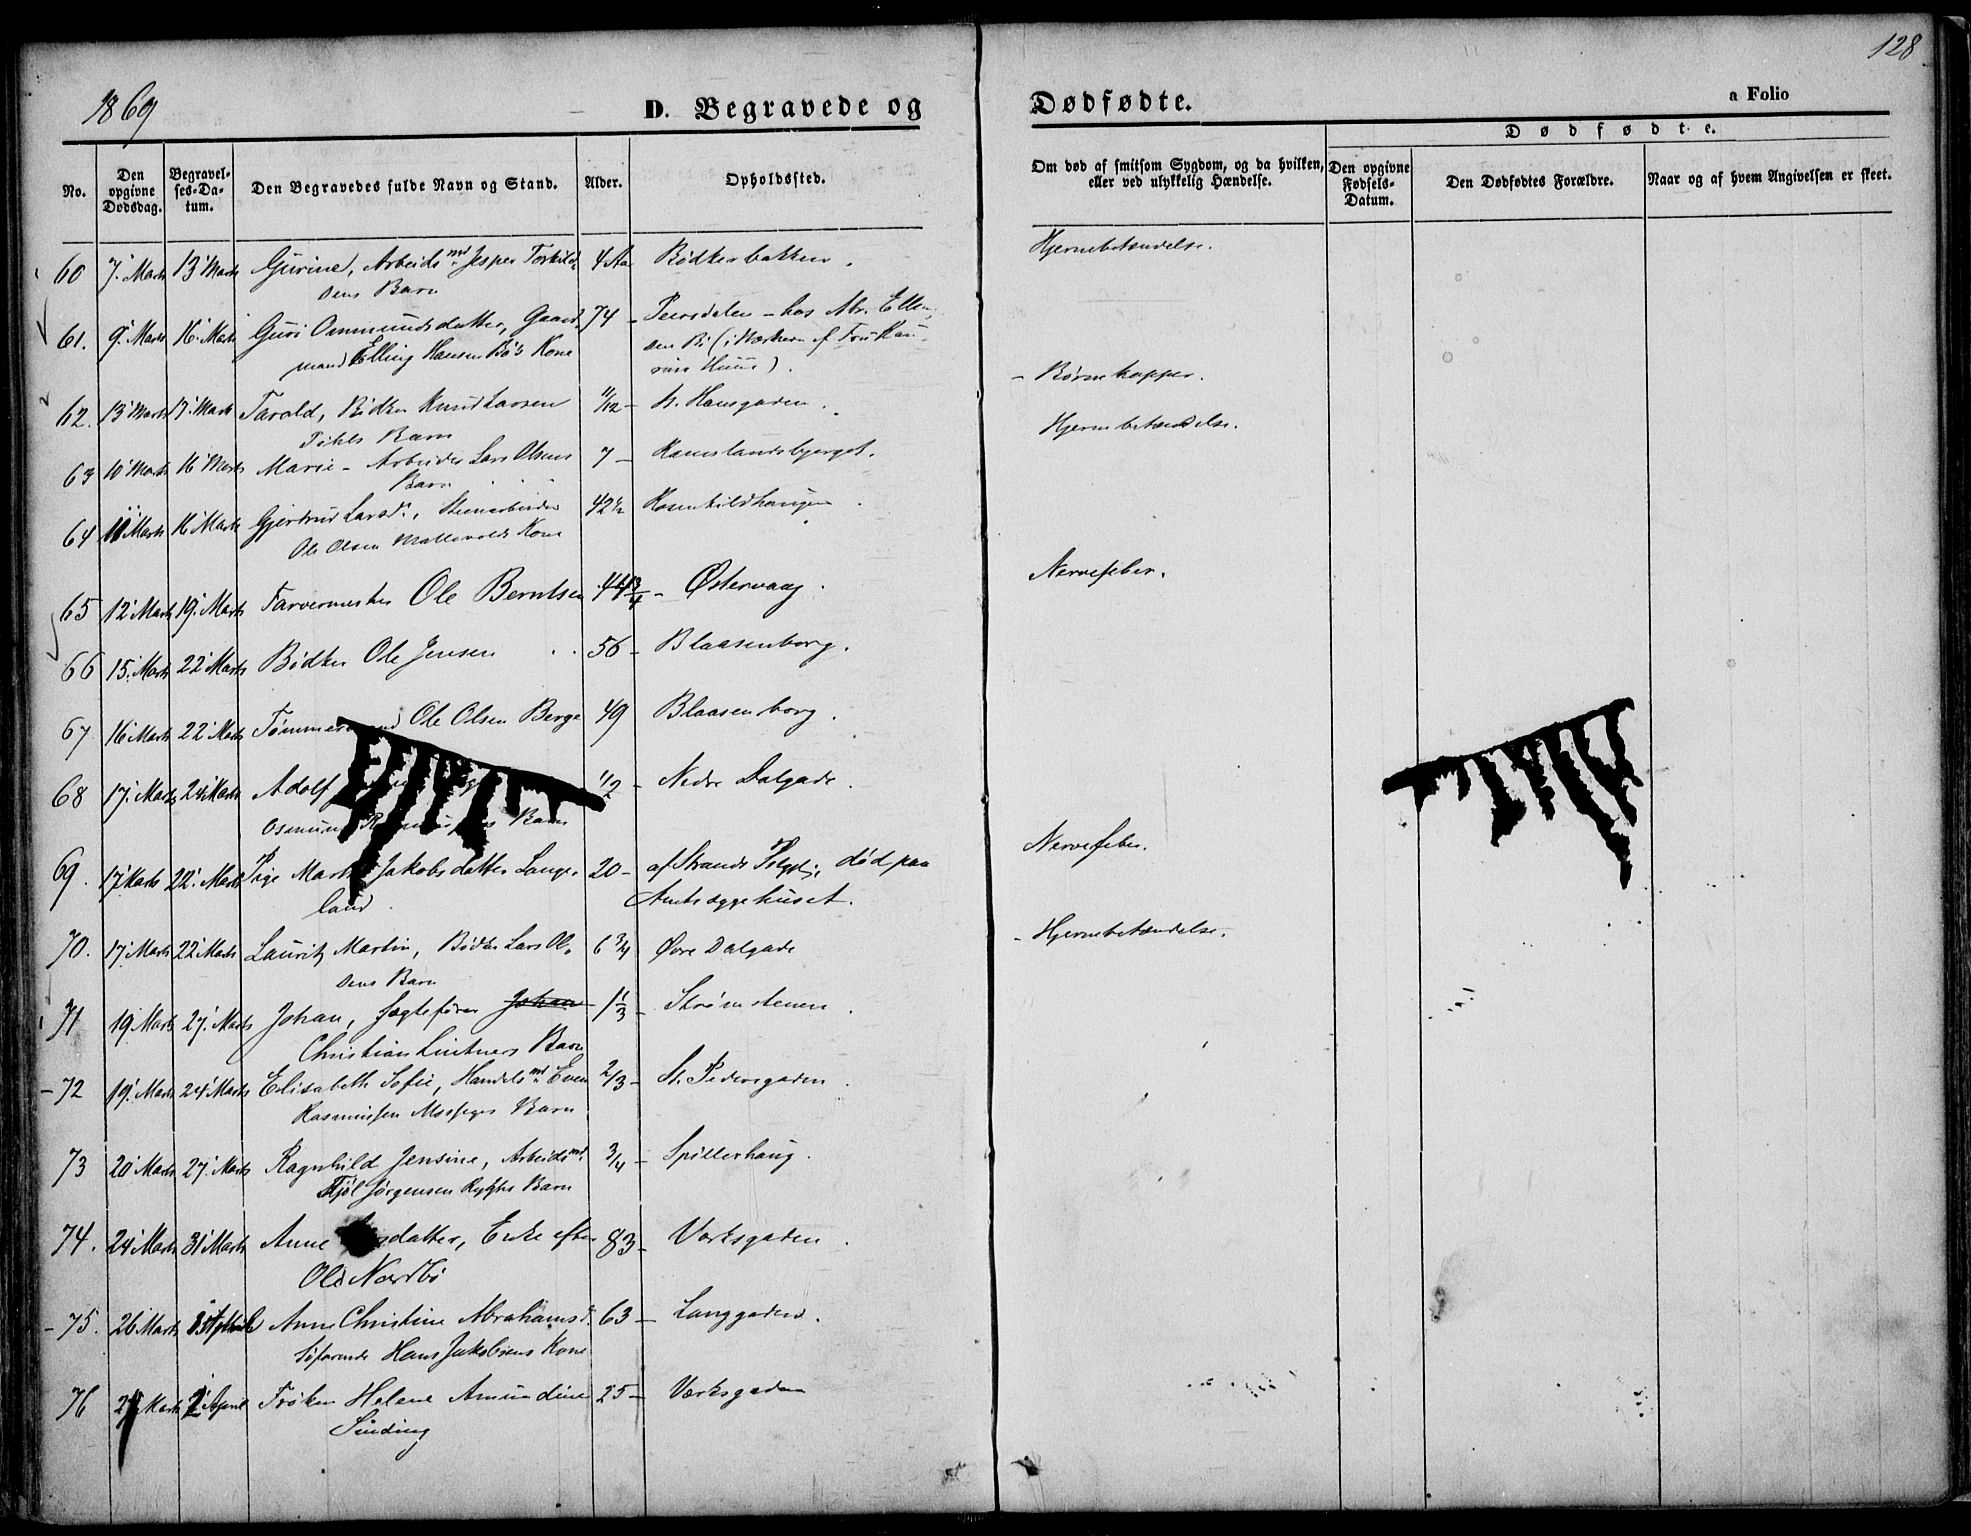 128
1869
D. Begravede og Dødfødte.
a Folio
No.
Den opgivne Dødsdag.
Begravelses-Datum.
Den Begravedes fulde Navn og Stand.
Alder.
Opholdssted.
Om død af smitsom Sygdom, og da hvilken, eller ved ulykkelig Hændelse.
Dødfødte.
Den opgivne Fødsels-Datum.
Den Dødfødtes Forældre.
Naar og af hvem Angivelsen er skeet.
60 7. Marts 13 Marts Gurine, Arbeidsmd. Jesper Torkild- 4 Aa Bødkerbakken. Hjernebetændelse.
sens Barn
61. 9. Marts 16. Marts Guri Ommundsdatter, Gaard- 74 - Peersdalen - hos Abr. Ellin-
mand Elling Hansen Bø's Kone sen Bø (i Nærheden af Fru
Huus).
62. 13 Marts 17. Marts Tarald, Bødker Knud Larsen 11/12 - St. Hansgaden. - Børnekopper.
Barn
63 10 Marts 16 Marts Marie - Arbeider Lars Olsens 7 - Ramslandsbjerget. Hjernebetændelse.
Barn
64 11 Marts 16 Marts Gjertrud Larsdr., Steenarbeider 42 1/2 Rosenkildhaugen
Ole Olsen Kone
65 12 Marts 19. Marts Farvermester Ole Berntsen 44 3/4 - Østervaag. Nervefeber.
66 15. Marts 22 Marts Bødker Ole Jensen 56 - Blaasenborg.
67 16 Marts 22 Marts Ole Olsen Berge 49 Blaasenborg.
68 17. Marts 24 Marts Adolf 1/2 - Nedre Dalgade.
Barn
69. 17 Marts 22. Marts Pige Jakobsdatter Lange- 20 - af Strands Prgjld, død paa Nervefeber.
land Amtssygehuset.
70. 17 Marts 22 Marts Lauritz Martin, Bødker Lars Ol- 6 3/4 Øvre Dalgade - Hjernebetændelse.
sens Barn
71 19 Marts 27. Marts Johan, Jægtefører Johan 1 1/3 - Strømstenen.
Christian Lintners Barn
- 72 19. Marts 24 Marts Elisabeth Sofie, Handelsmd. Even 2/3 - St. Pedersgaden.
Rasmussen Mossiges Barn
73 20 Marts 27. Marts Ragnhild Jensine, Arbeidsmd. 3/4 - Spilderhaug.
Jørgensen Barn
74. 24 Marts 31 Marts Anne datter, Enke efter 83 - Værksgaden.
Ole Nordbø
- 75. 26 Marts Anne Christine Abrahamsd. 63 - Langgaden.
Søfarende Hans Jakobsens Kone
76 Marts 2 April Frøken Helene Amundine 25 - Værksgaden
Sinding